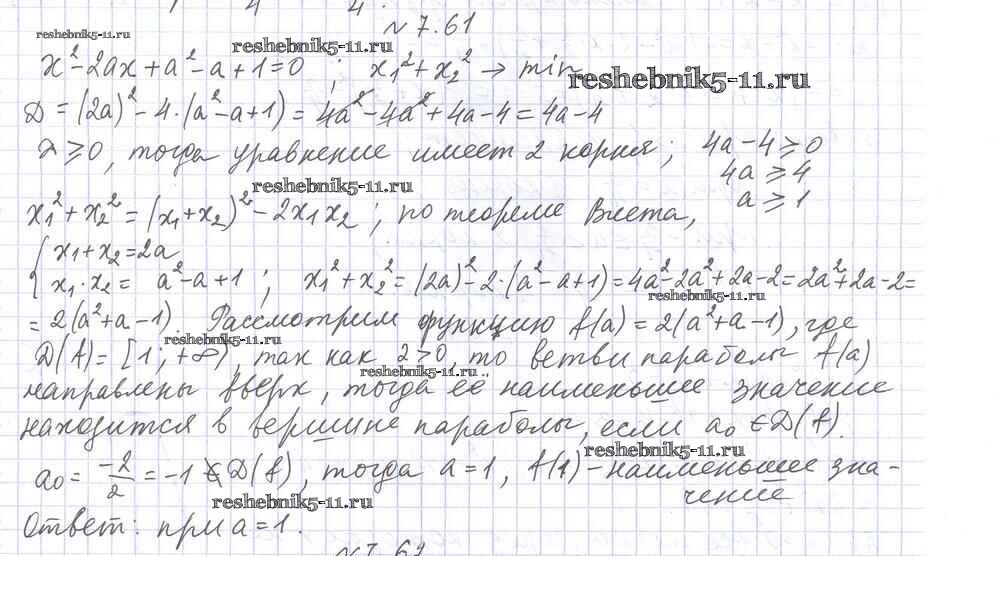 №7.61
reshebnik5-11.ru
reshebnik5-11.ru
x²-2ax+a²-a+1=0 ; x₁²+x₂² → min
reshebnik5-11.ru
D = (2a)²-4·(a²-a+1) = 4a²-4a²+4a-4 = 4a-4
D ⩾ 0, тогда уравнение имеет 2 корня; 4a-4 ⩾ 0
4a ⩾ 4
reshebnik5-11.ru
a ⩾ 1
x₁²+x₂² = (x₁+x₂)²-2x₁x₂ ; по теореме Виета,
{ x₁+x₂=2a
x₁·x₂ = a²-a+1 ; x₁²+x₂² = (2a)²-2·(a²-a+1) = 4a²-2a²+2a-2 = 2a²+2a-2 =
reshebnik5-11.ru
= 2(a²+a-1). Рассмотрим функцию f(a) = 2(a²+a-1), где
reshebnik5-11.ru
D(f) = [1; +∞), так как 2>0, то ветви параболы f(a)
reshebnik5-11.ru
направлены вверх, тогда ее наименьшее значение
находится в вершине параболы, если a₀ ∈ D(f).
reshebnik5-11.ru
a₀ = -2/2 = -1 ∉ D(f), тогда a=1, f(1) - наименьшее зна-
чение
reshebnik5-11.ru
Ответ: при a=1.
№7.62